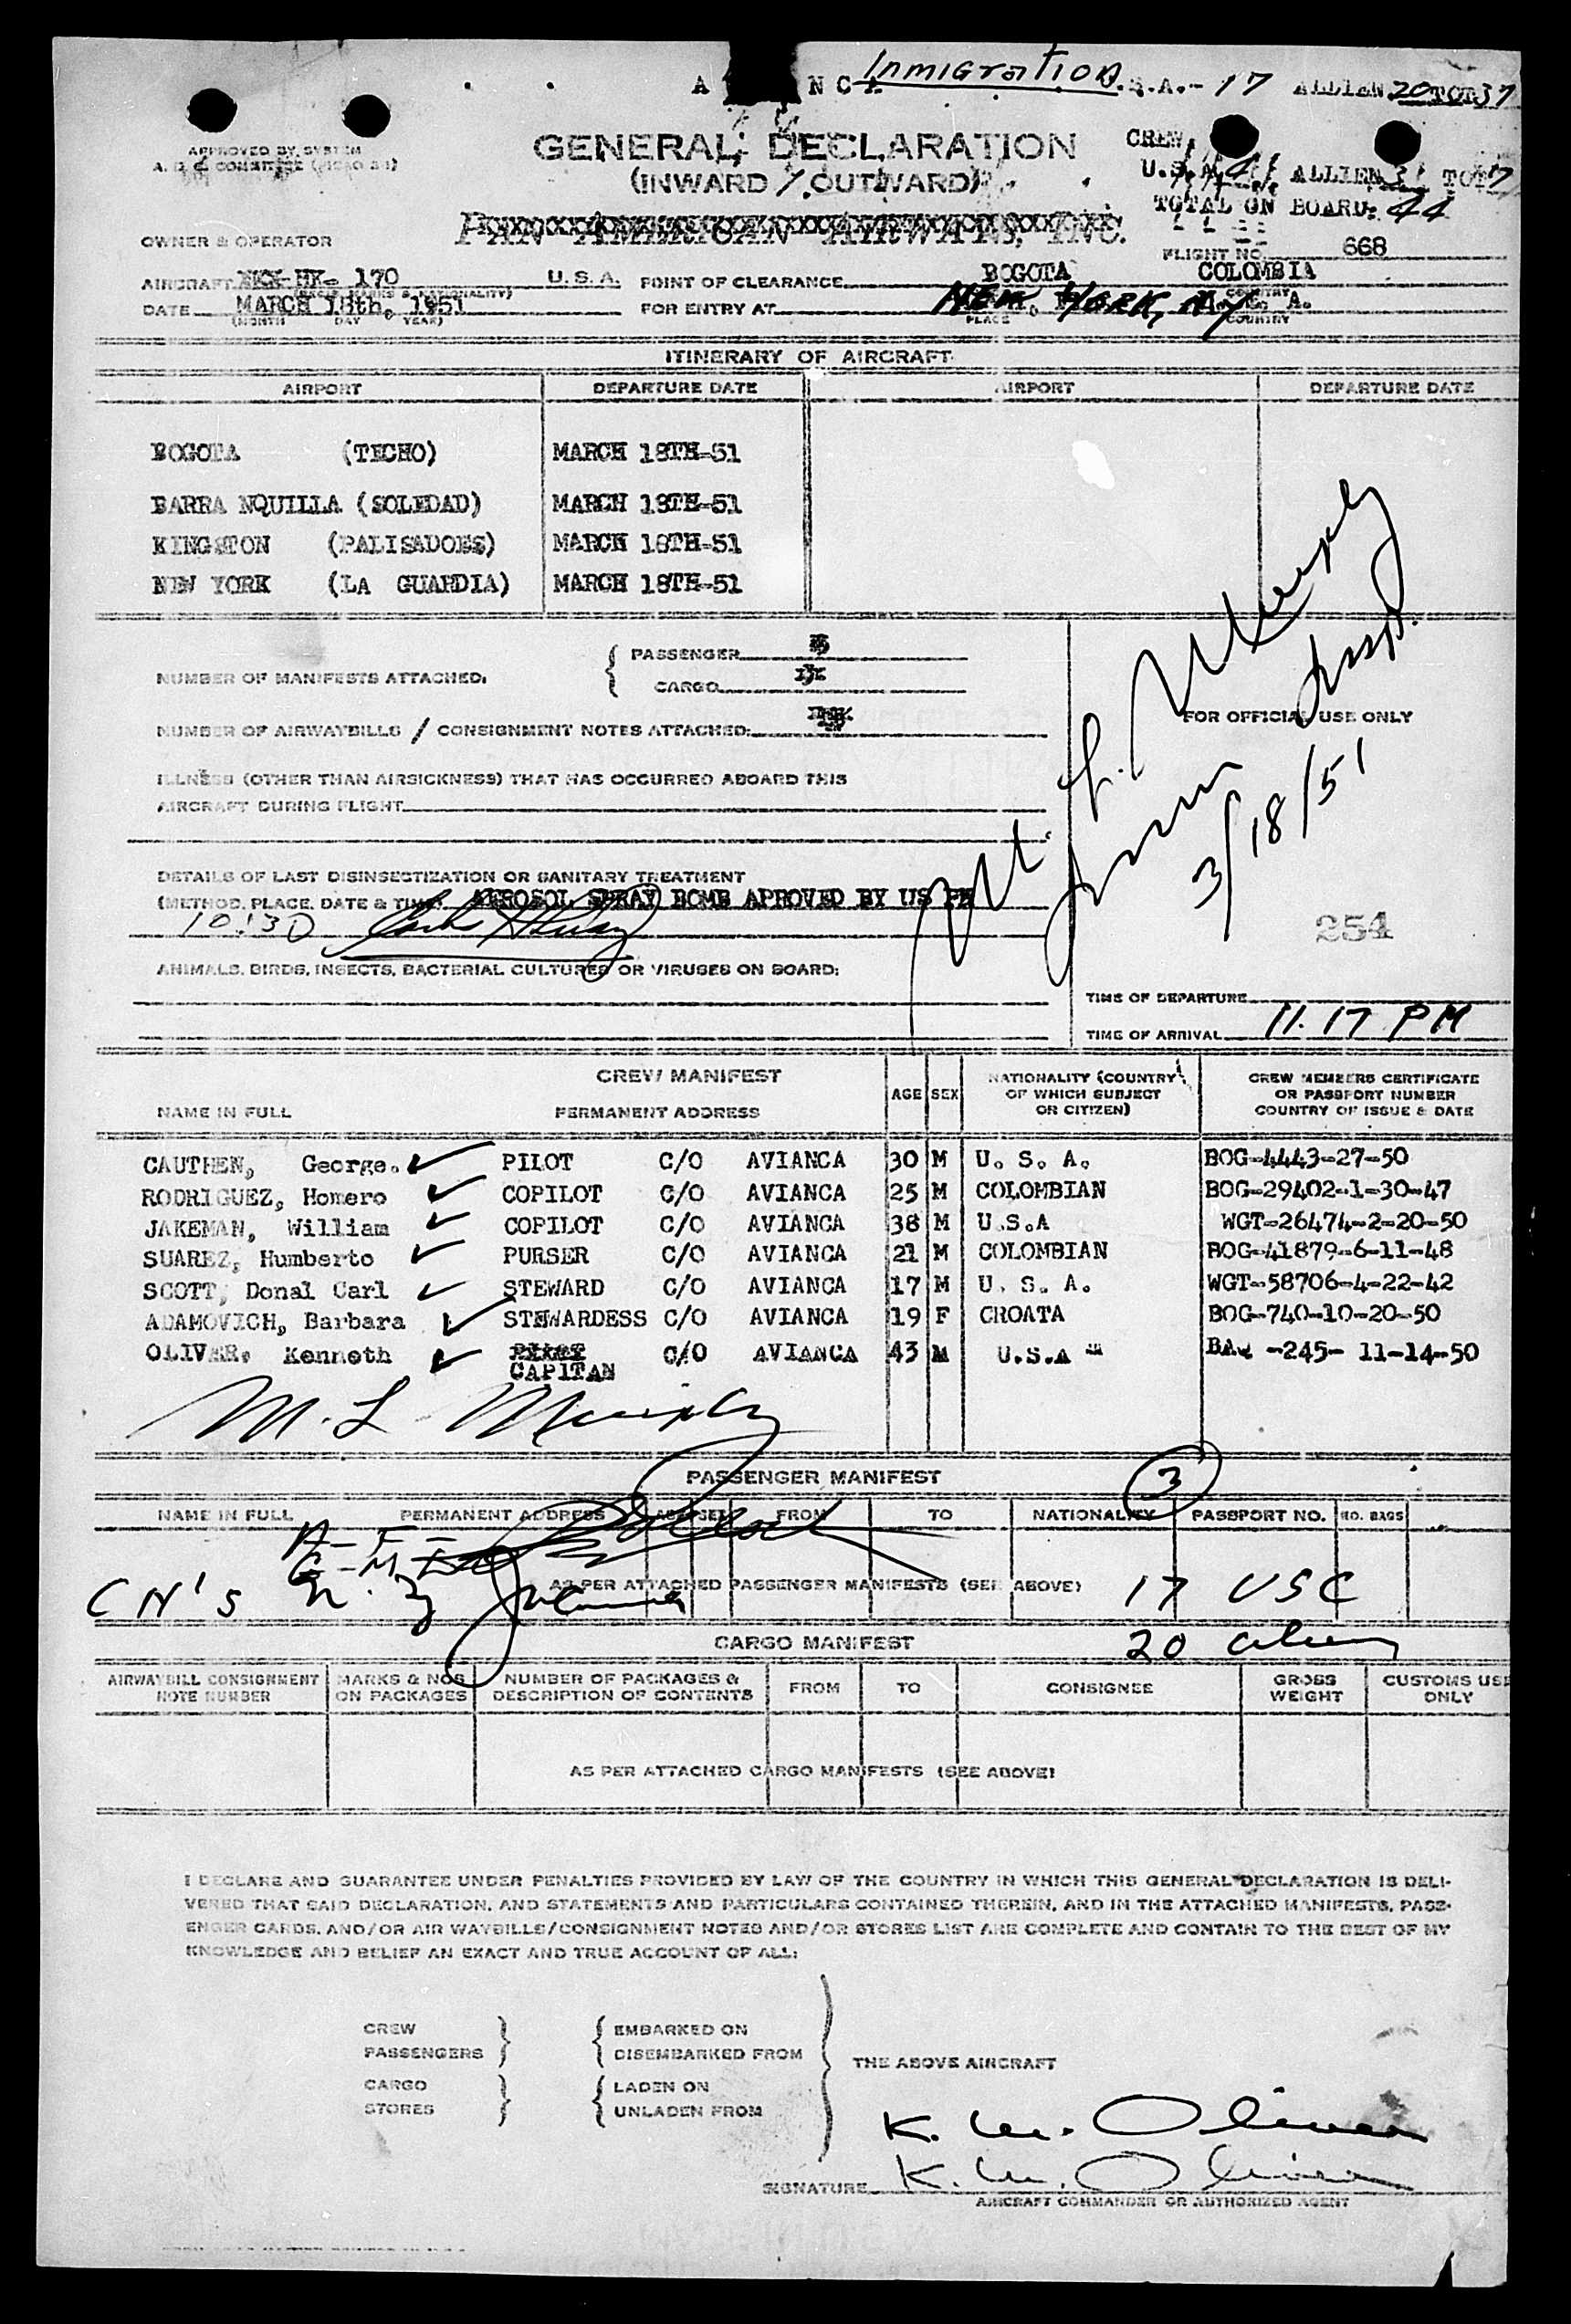 Inmigration
A NC U.S.A.- 17 ALLIEN 20 TOT 37
APPROVED BY SYSTEM
GENERAL DECLARATION
CREW
(INWARD / OUTWARD)
U.S.A. 4 ALLIEN 3 TOT 7
TOTAL ON BOARD: 44
OWNER & OPERATOR
PAN AMERICAN AIRWAYS, INC.
FLIGHT NO. 668
AIRCRAFT HK- 170 U.S.A. POINT OF CLEARANCE BOGOTA COLOMBIA
DATE MARCH 18th, 1951 FOR ENTRY AT NEW YORK, NY
(MONTH DAY YEAR) PLACE COUNTRY
ITINERARY OF AIRCRAFT
AIRPORT DEPARTURE DATE AIRPORT DEPARTURE DATE
BOGOTA (TECHO) MARCH 18TH-51
BARRA NQUILLA (SOLEDAD) MARCH 18TH-51
KINGSTON (PALISADOES) MARCH 18TH-51
NEW YORK (LA GUARDIA) MARCH 18TH-51
NUMBER OF MANIFESTS ATTACHED: PASSENGER
CARGO
NUMBER OF AIRWAYBILLS / CONSIGNMENT NOTES ATTACHED:
FOR OFFICIAL USE ONLY
M. L. Murphy
Immn Insp.
3/18/51
ILLNESS (OTHER THAN AIRSICKNESS) THAT HAS OCCURRED ABOARD THIS
AIRCRAFT DURING FLIGHT
DETAILS OF LAST DISINSECTIZATION OR SANITARY TREATMENT
(METHOD, PLACE, DATE & TIME) AEROSOL SPRAY BOMB APPROVED BY US PH
10:30
254
ANIMALS, BIRDS, INSECTS, BACTERIAL CULTURES OR VIRUSES ON BOARD:
TIME OF DEPARTURE
TIME OF ARRIVAL 11.17 PM
CREW MANIFEST
NAME IN FULL PERMANENT ADDRESS AGE SEX NATIONALITY (COUNTRY OF WHICH SUBJECT OR CITIZEN) CREW MEMBERS CERTIFICATE OR PASSPORT NUMBER COUNTRY OF ISSUE & DATE
CAUTHEN, George. PILOT C/O AVIANCA 30 M U. S. A. BOG-4443-27-50
RODRIGUEZ, Homero COPILOT C/O AVIANCA 25 M COLOMBIAN BOG-29402-1-30-47
JAKEMAN, William COPILOT C/O AVIANCA 38 M U.S.A WGT-26474-2-20-50
SUAREZ, Humberto PURSER C/O AVIANCA 21 M COLOMBIAN BOG-41879-6-11-48
SCOTT, Donal Carl STEWARD C/O AVIANCA 17 M U. S. A. WGT-58706-4-22-42
ADAMOVICH, Barbara STEWARDESS C/O AVIANCA 19 F CROATA BOG-740-10-20-50
OLIVER, Kenneth PILOT C/O AVIANCA 43 M U.S.A BAQ -245- 11-14-50
CAPITAN
M. L. Murphy
PASSENGER MANIFEST
3
NAME IN FULL PERMANENT ADDRESS AGE SEX FROM TO NATIONALITY PASSPORT NO. NO. BAGS
AS PER ATTACHED PASSENGER MANIFESTS (SEE ABOVE) 17 USC
CN's
CARGO MANIFEST 20 aliens
AIRWAYBILL CONSIGNMENT NOTE NUMBER MARKS & NOS ON PACKAGES NUMBER OF PACKAGES & DESCRIPTION OF CONTENTS FROM TO CONSIGNEE GROSS WEIGHT CUSTOMS USE ONLY
AS PER ATTACHED CARGO MANIFESTS (SEE ABOVE)
I DECLARE AND GUARANTEE UNDER PENALTIES PROVIDED BY LAW OF THE COUNTRY IN WHICH THIS GENERAL DECLARATION IS DELI-
VERED THAT SAID DECLARATION, AND STATEMENTS AND PARTICULARS CONTAINED THEREIN, AND IN THE ATTACHED MANIFESTS, PASS-
ENGER CARDS, AND/OR AIR WAYBILLS/CONSIGNMENT NOTES AND/OR STORES LIST ARE COMPLETE AND CONTAIN TO THE BEST OF MY
KNOWLEDGE AND BELIEF AN EXACT AND TRUE ACCOUNT OF ALL:
CREW EMBARKED ON
PASSENGERS DISEMBARKED FROM
THE ABOVE AIRCRAFT
CARGO LADEN ON
STORES UNLADEN FROM
K. W. Oliver
SIGNATURE K. W. Oliver
AIRCRAFT COMMANDER OR AUTHORIZED AGENT